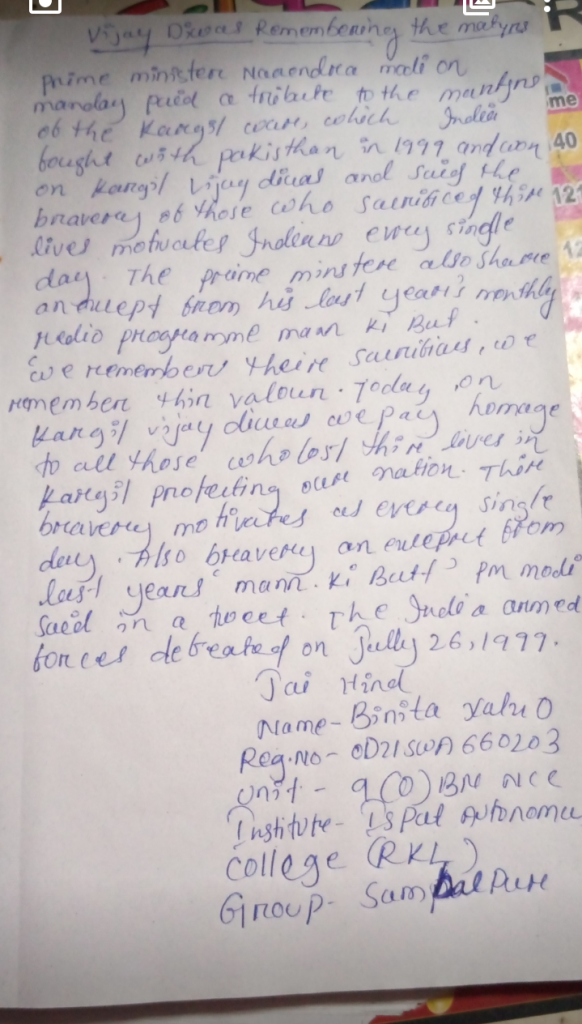 Vijay Diwas Remembering the matyrs
prime minister Narendra modi on
manday paid a tribute to the martyrs
of the Kargil war, which India
fought with pakisthan in 1999 and won
on Kargil Vijay diwas and said the
bravery of those who sacrificed thir
lives motivates Indians every single
day. The prime minstere also share
an from his last year's monthly
radio programme mann Ki Bat.
we remembers theire , we
remember thir valour. Today, on
Kargil vijay diwas we pay homage
to all those who lost thir lives in
Kargil protecting our nation. Thir
bravery motivates us every single
day. Also bravery an from
last years' mann. Ki Batt' pm modi
said in a tweet. The India armed
forces defeated on Jully 26, 1999.
Jai Hind
Name- Binita
Reg.No- OD21SWA660203
Unit - 9(O) BN NCC
Institute- Ispat Autonomu
College (RKL)
Group- Sambalpur
me
40
12
12